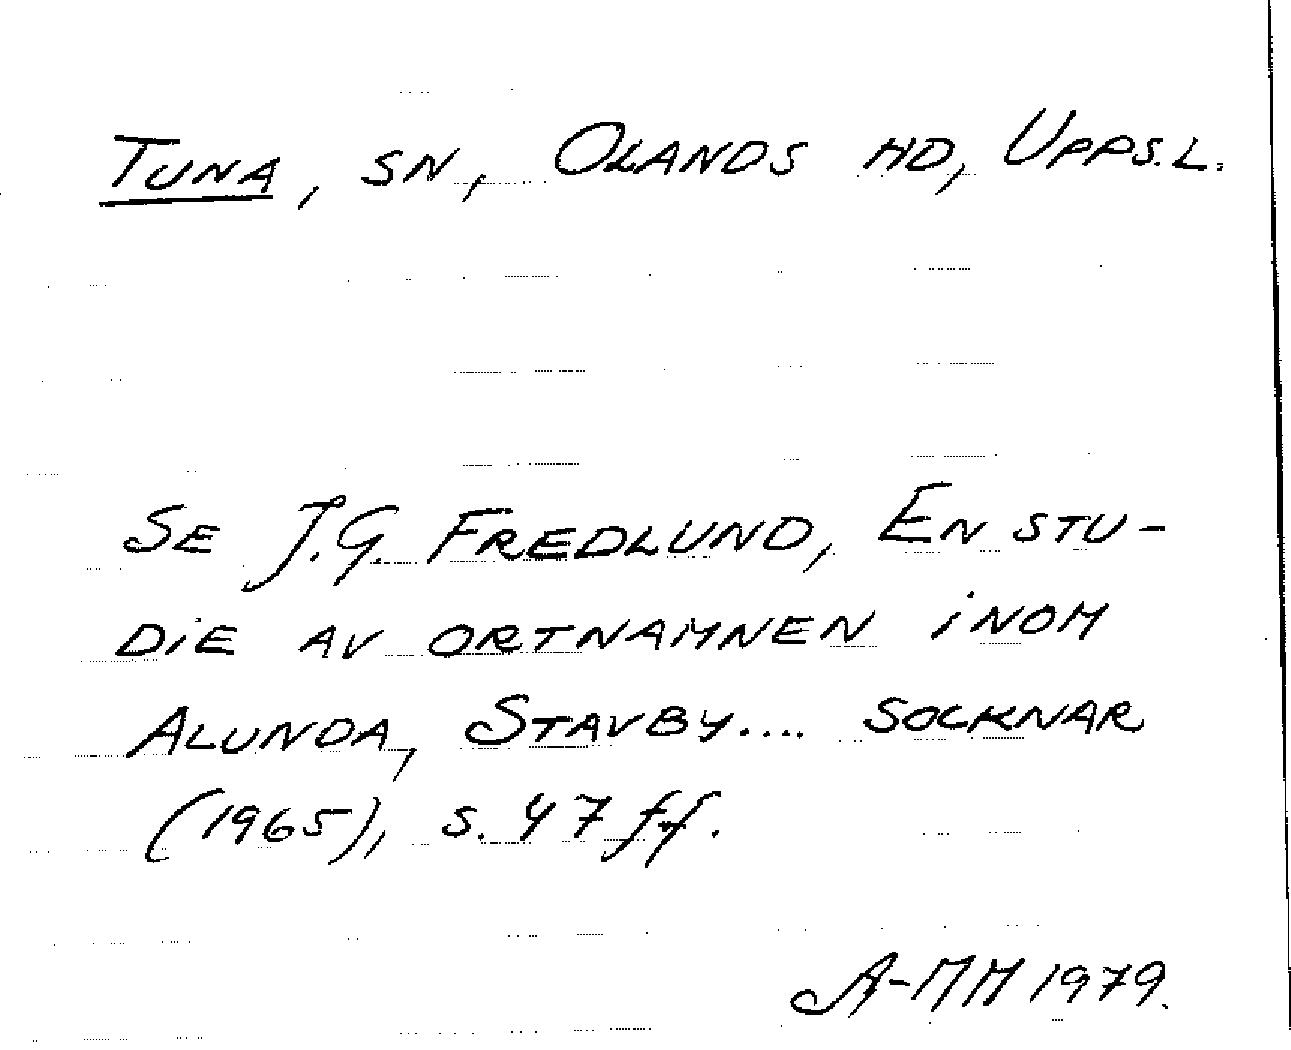 TUNA, SN, OLANDS HD, UPPS.L.
SE J.G. FREDLUND, EN STU-
DIE AV ORTNAMNEN INOM
ALUNDA, STAVBY.... SOCKNAR
(1965), S. 47 ff.
A-MM 1979.